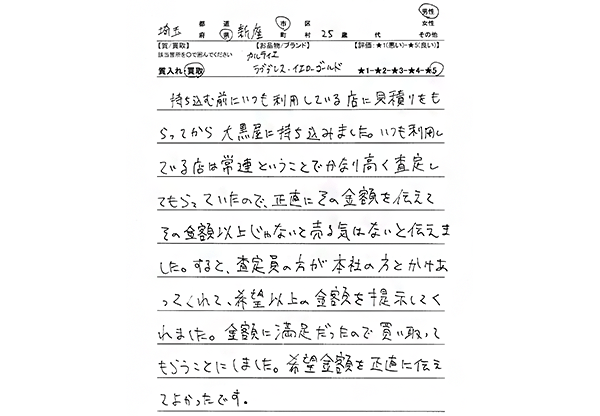 埼玉 都道府県 新座 市区町村 25歳代 男性 女性 その他
【質/買取】 【お品物/ブランド】 【評価:★1(悪い)-★5(良い)】
該当箇所を○で囲んでください カルティエ
質入れ・買取 ラブブレス・イエローゴールド ★1-★2-★3-★4-★5
持ち込む前にいつも利用している店に見積りをも
らってから大黒屋に持ち込みました。いつも利用し
ている店は常連ということでかなり高く査定し
てもらっていたので、正直にその金額を伝えて
その金額以上じゃないと売る気はないと伝えま
した。すると、査定員の方が本社の方とかけあ
ってくれて、希望以上の金額を提示してく
れました。金額に満足だったので買い取って
もらうことにしました。希望金額を正直に伝え
てよかったです。